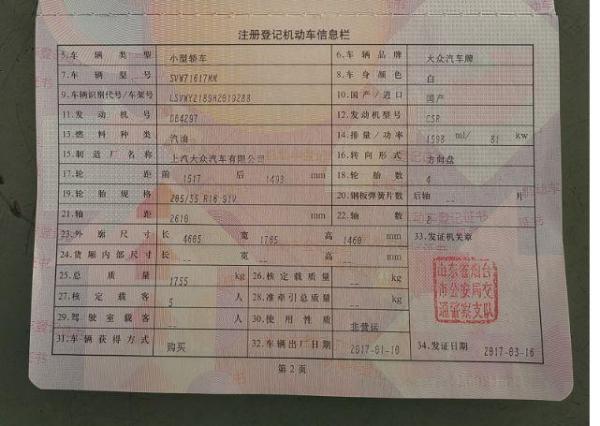 注册登记机动车信息栏
5.车辆类型 小型轿车 6.车辆品牌 大众汽车牌
7.车辆型号 SVW71617MM 8.车身颜色 白
9.车辆识别代号/车架号 10.国产/进口 国产
11.发动机号 12.发动机型号 CSR
13.燃料种类 汽油 14.排量/功率 1598 ml/ 81 kw
15.制造厂名称 上汽大众汽车有限公司 16.转向形式 方向盘
17.轮距 前 1517 后 1493 mm 18.轮胎数 4
19.轮胎规格 205/55 R16 91V 20.钢板弹簧片数 后轴 -- 片
21.轴距 2610 mm 22.轴数 2
23.外廓尺寸 长 4605 宽 1765 高 1460 mm 33.发证机关章
24.货厢内部尺寸 长 -- 宽 -- 高 -- mm
25.总质量 1755 kg 26.核定载质量 -- kg
27.核定载客 5 人 28.准牵引总质量 -- kg
29.驾驶室载客 -- 人 30.使用性质 非营运
山东省烟台
市公安局交
通警察支队
31.车辆获得方式 购买 32.车辆出厂日期 2017-01-10 34.发证日期 2017-03-16
第2页